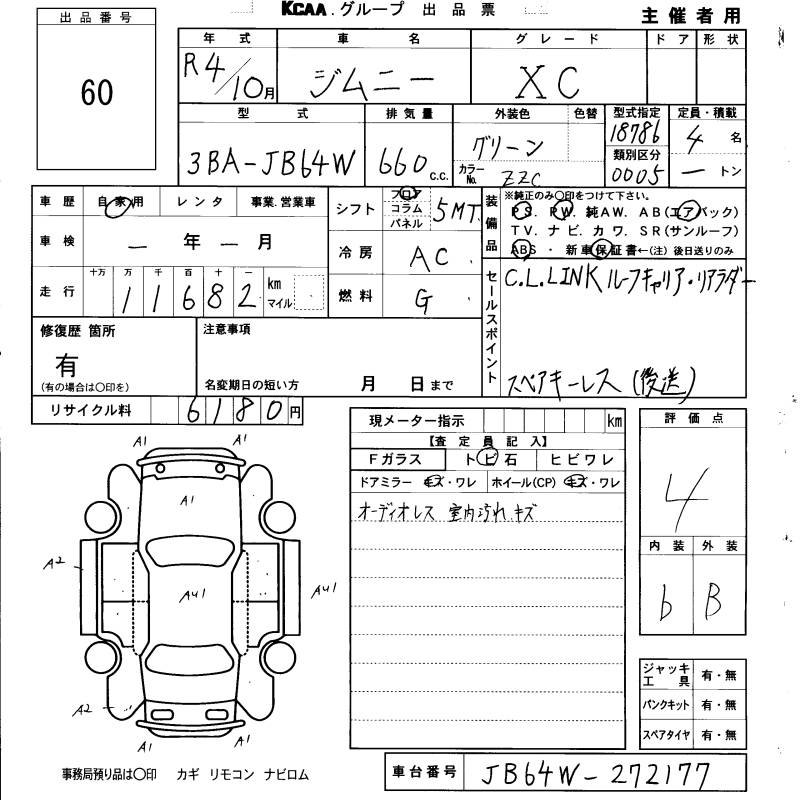 KCAA.グループ 出品票
主催者用
出品番号
60
年式 車名 グレード ドア 形状
R4/10月 ジムニー XC
型式 排気量 外装色 色替 型式指定 定員・積載
3BA-JB64W 660 c.c. グリーン 18786 4名
カラーNo. ZZC 類別区分 0005 ートン
車歴 自家用 レンタ 事業.営業車
シフト フロア コラム パネル 5MT
装備品 ※純正のみ〇印をつけて下さい。
PS. PW. 純AW. AB(エアバック)
TV. ナビ. カワ. SR(サンルーフ)
ABS ・ 新車保証書←(注) 後日送りのみ
車検 ー年ー月
冷房 AC
走行 十万 万 千 百 十 一 km マイル
11682
燃料 G
セールスポイント
C.L.LINK ルーフキャリア・リアラダー
スペアキーレス (後送)
修復歴 箇所
有
(有の場合は〇印を)
注意事項
名変期日の短い方 月 日まで
リサイクル料 6180円
現メーター指示 km
【査定員記入】
Fガラス トビ石 ヒビワレ
ドアミラー キズ・ワレ ホイール(CP) キズ・ワレ
オーディオレス 室内汚れ.キズ
評価点
4
内装 外装
b B
A1 A1
A1
A2
AU1 AU1
A2
A1 A1
ジャッキ工具 有・無
パンクキット 有・無
スペアタイヤ 有・無
事務局預り品は〇印 カギ リモコン ナビロム
車台番号 JB64W-272177